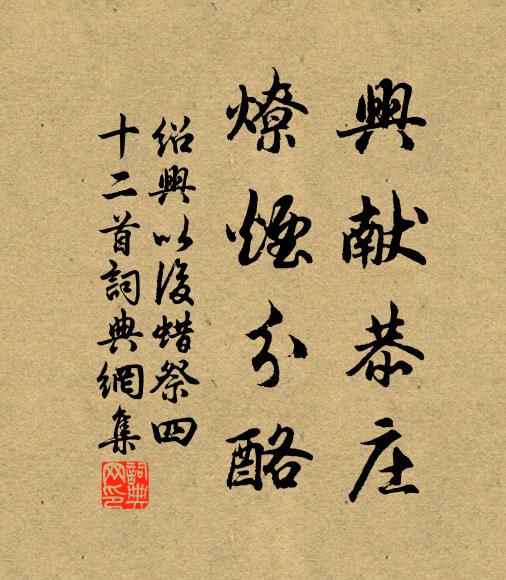 興献恭庄
燎煙分酪
紹興以後蜡祭四
十二首詞典網集
詞典
网印